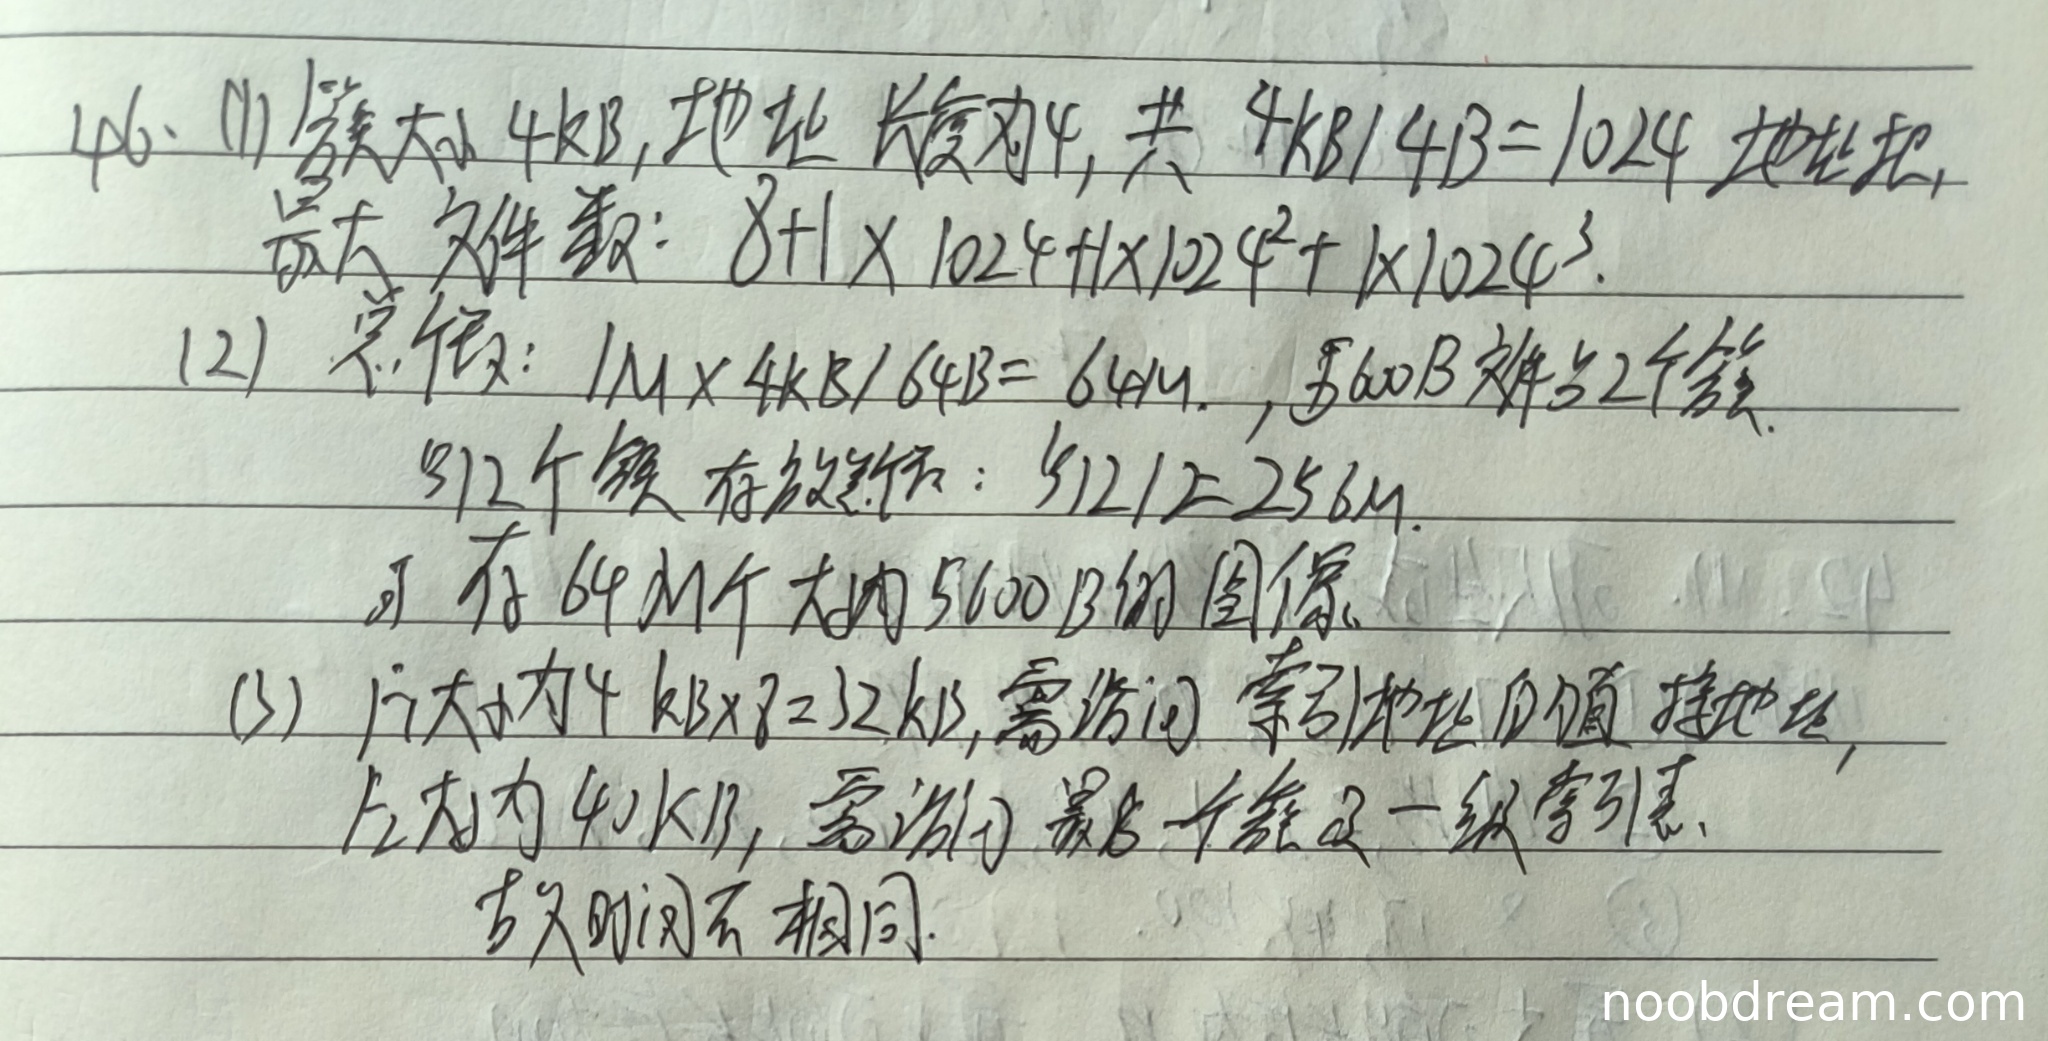 46. (1) 簇大小4KB,地址长度为4,共 4KB/4B=1024 地址,
最大文件数: 8+1×1024+1×1024²+1×1024³.
(2) 总个数: 1M×4KB/64B=64M. ,5600B文件占2个簇.
512个簇存放数据: 512/2=256M.
可存64M个大小为5600B的图像.
(3) F1大小为4KB×8=32KB,需访问索引地址的直接地址,
F2大小为40KB,需访问最后一个簇及一级索引表.
故时间不相同.
noobdream.com